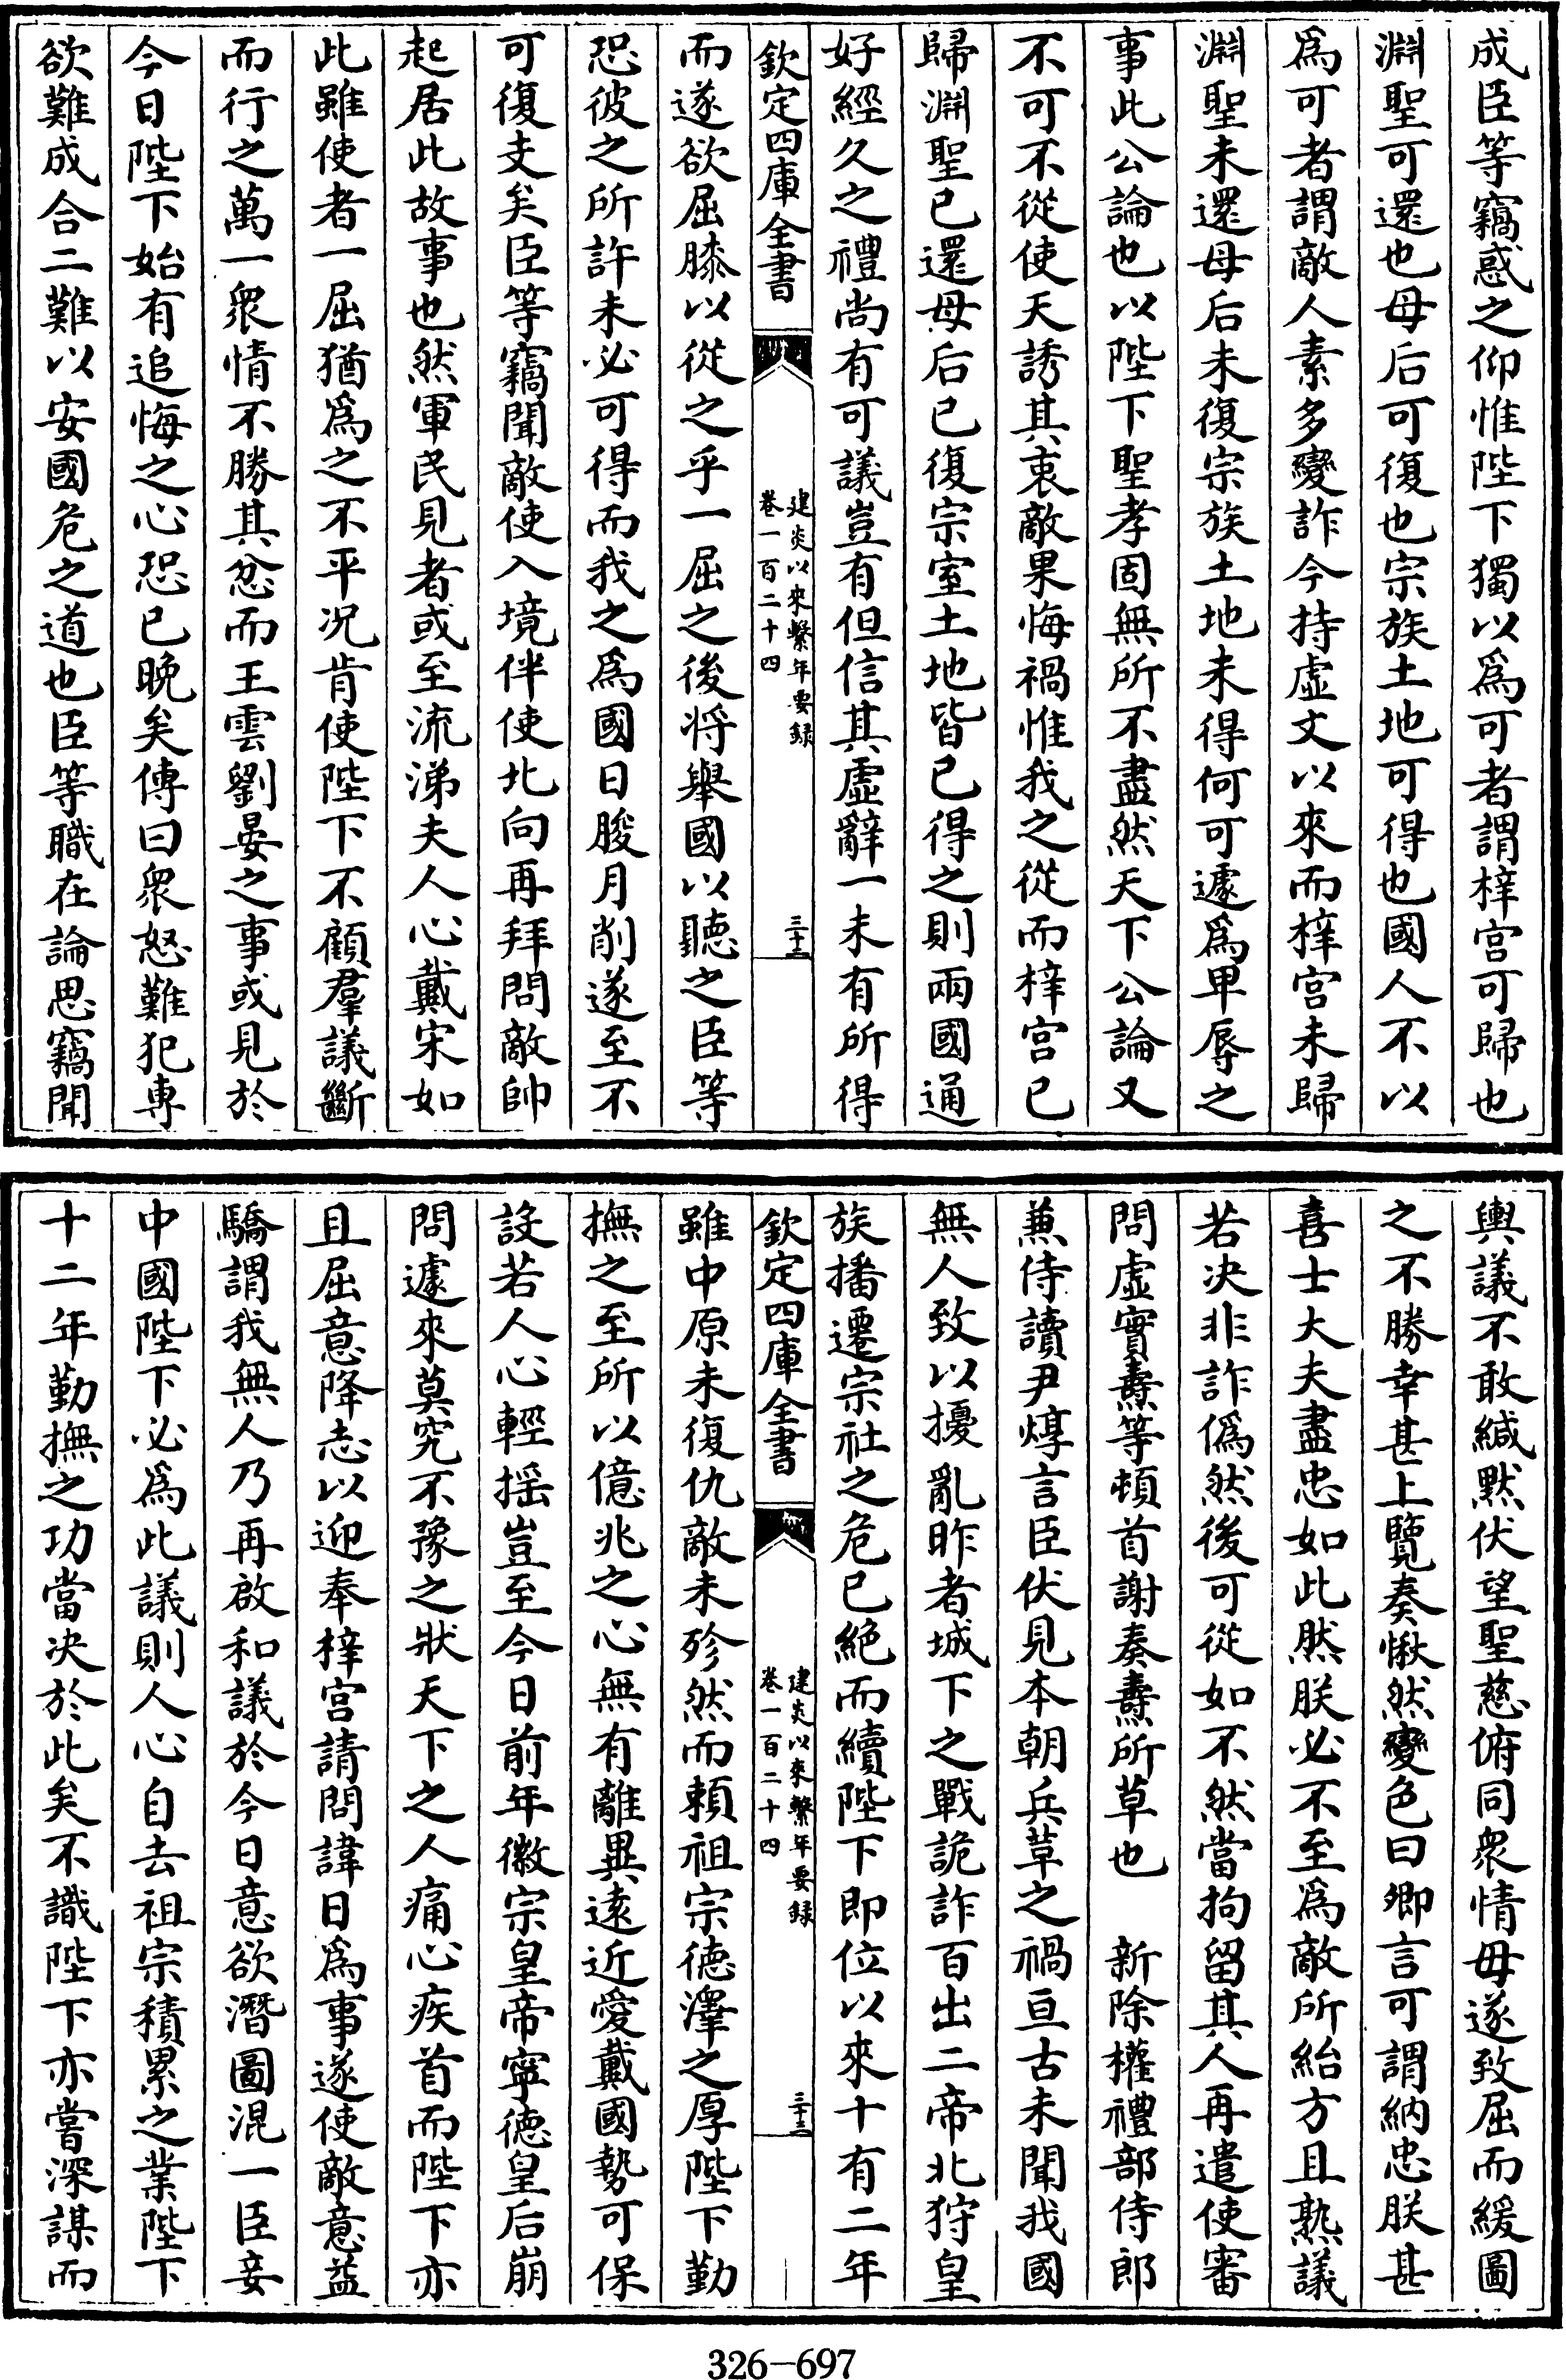 成臣等竊惑之仰惟陛下獨以爲可者謂梓宫可歸也
淵聖可還也母后可復也宗族土地可得也國人不以
爲可者謂敵人素多變詐今持虛文以來而梓宫未歸
淵聖未還母后未復宗族土地未得何可遽爲卑辱之
事此公論也以陛下聖孝固無所不盡然天下公論又
不可不從使天誘其衷敵果悔禍惟我之從而梓宫已
歸淵聖已還母后已復宗室土地皆已得之則兩國通
好經久之禮尚有可議豈有但信其虛辭一未有所得
欽定四庫全書
建炎以來繫年要録
卷一百二十四
三十二
而遂欲屈膝以從之乎一屈之後将舉國以聽之臣等
恐彼之所許未必可得而我之爲國日朘月削遂至不
可復支矣臣等竊聞敵使入境伴使北向再拜問敵帥
起居此故事也然軍民見者或至流涕夫人心戴宋如
此雖使者一屈猶爲之不平况肯使陛下不顧羣議斷
而行之萬一衆情不勝其忿而王雲劉晏之事或見於
今日陛下始有追悔之心恐已晚矣傳曰衆怒難犯專
欲難成合二難以安國危之道也臣等職在論思竊聞
輿議不敢緘默伏望聖慈俯同衆情毋遂致屈而緩圖
之不勝幸甚上覽奏愀然變色曰卿言可謂納忠朕甚
喜士大夫盡忠如此然朕必不至爲敵所紿方且熟議
若决非詐僞然後可從如不然當拘留其人再遣使審
問虛實燾等頓首謝奏燾所草也　新除權禮部侍郎
兼侍讀尹焞言臣伏見本朝兵草之禍亘古未聞我國
無人致以擾亂昨者城下之戰詭詐百出二帝北狩皇
族播遷宗社之危已絶而續陛下即位以來十有二年
欽定四庫全書
建炎以來繫年要録
卷一百二十四
三十三
雖中原未復仇敵未殄然而頼祖宗德澤之厚陛下勤
撫之至所以億兆之心無有離異遠近愛戴國勢可保
設若人心輕揺豈至今日前年徽宗皇帝寧德皇后崩
問遽來莫究不豫之狀天下之人痛心疾首而陛下亦
且屈意降志以迎奉梓宫請問諱日爲事遂使敵意益
驕謂我無人乃再啟和議於今日意欲潛圖混一臣妾
中國陛下必爲此議則人心自去祖宗積累之業陛下
十二年勤撫之功當决於此矣不識陛下亦嘗深謀而
326-697